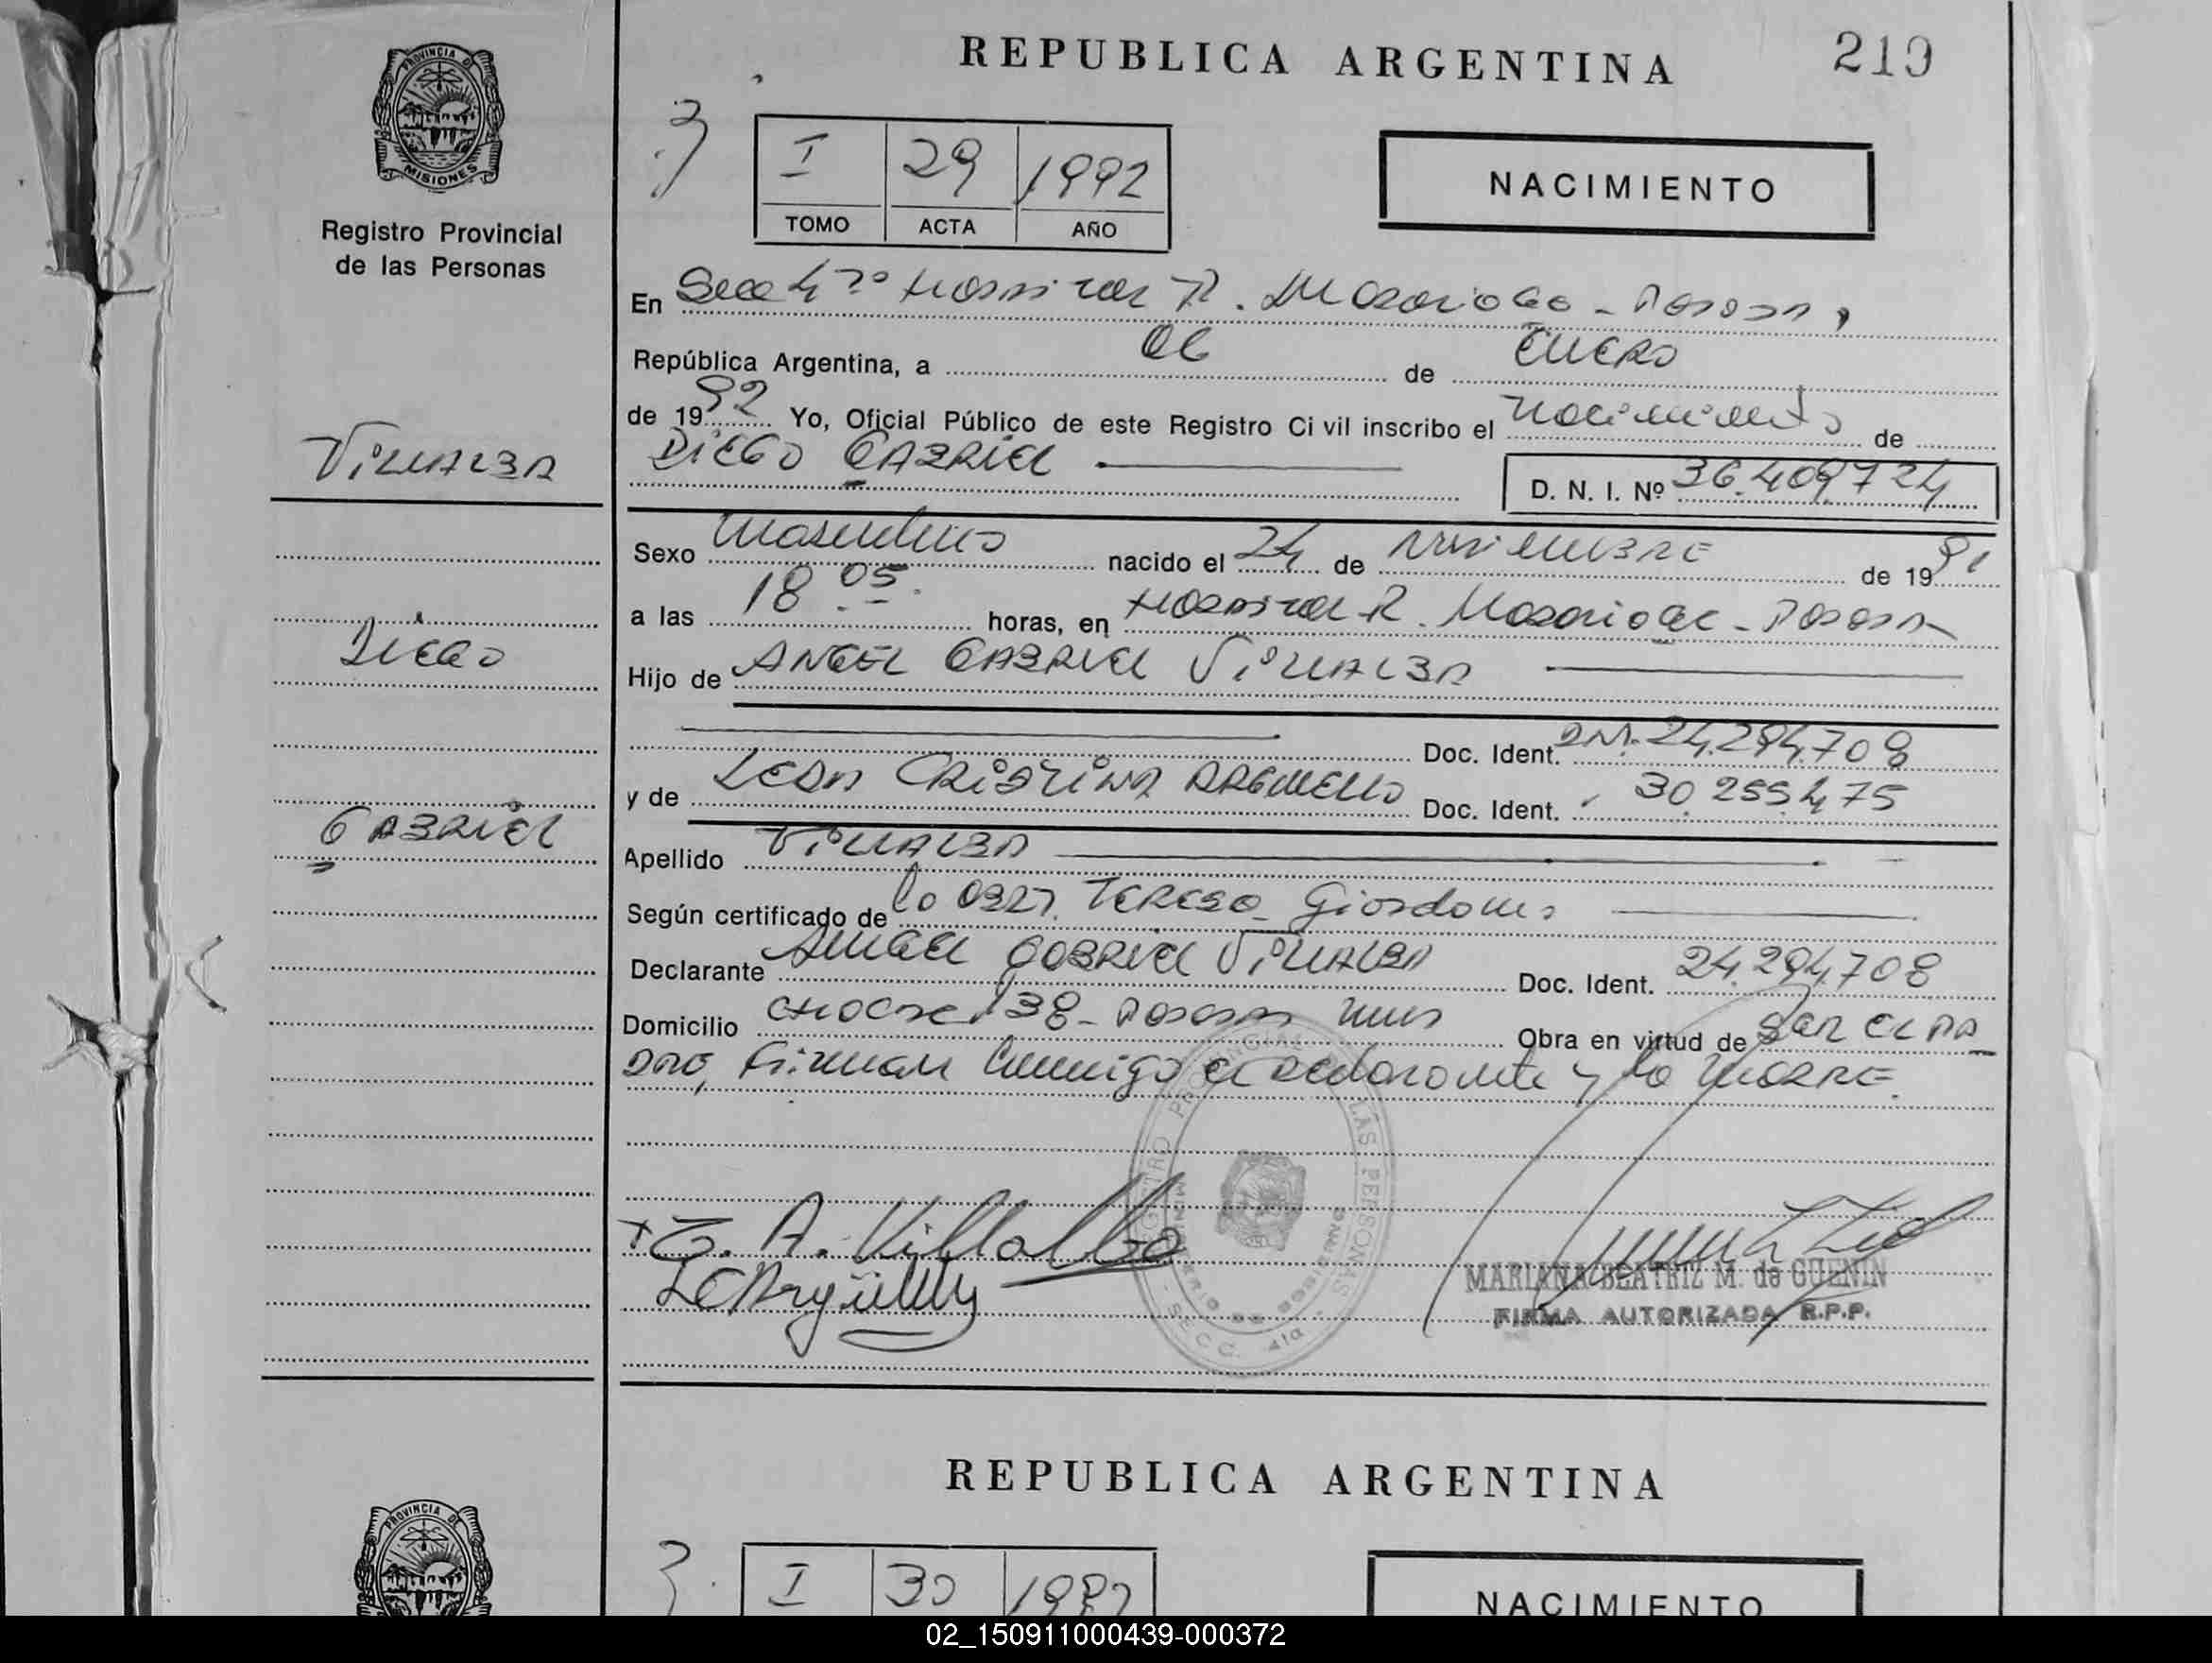 REPUBLICA ARGENTINA
219
PROVINCIA DE
MISIONES
Registro Provincial
de las Personas
I 29 1992
TOMO ACTA AÑO
NACIMIENTO
En Secc 4ta Hospital R. Madariaga - Posadas,
República Argentina, a 06 de ENERO
de 1992 Yo, Oficial Público de este Registro Civil inscribo el nacimiento de
VILLALBA
DIEGO GABRIEL
D. N. I. Nº 36.409724
Sexo Masculino nacido el 24 de NOVIEMBRE de 1991
a las 18 05 horas, en Hospital R. Madariaga - Posadas
DIEGO
Hijo de ANGEL GABRIEL VILLALBA
Doc. Ident. DNI. 24.294.708
y de CRISTINA ARGUELLO Doc. Ident. 30.255.475
GABRIEL
Apellido VILLALBA
Según certificado de la OBST. TERESA
Declarante ANGEL GABRIEL VILLALBA Doc. Ident. 24.294.708
Domicilio 138 - Posadas Mnes Obra en virtud de SER EL PA-
DRE, Firman Conmigo el declarante y la MADRE.
REGISTRO PROVINCIAL DE LAS PERSONAS
MINISTERIO DE GOBIERNO
SECC. 4ta
G. A. Villalba
LCArguello
MARIANA BEATRIZ M. de GUENIN
FIRMA AUTORIZADA R.P.P.
REPUBLICA ARGENTINA
PROVINCIA DE
I 30 1992
NACIMIENTO
02_150911000439-000372